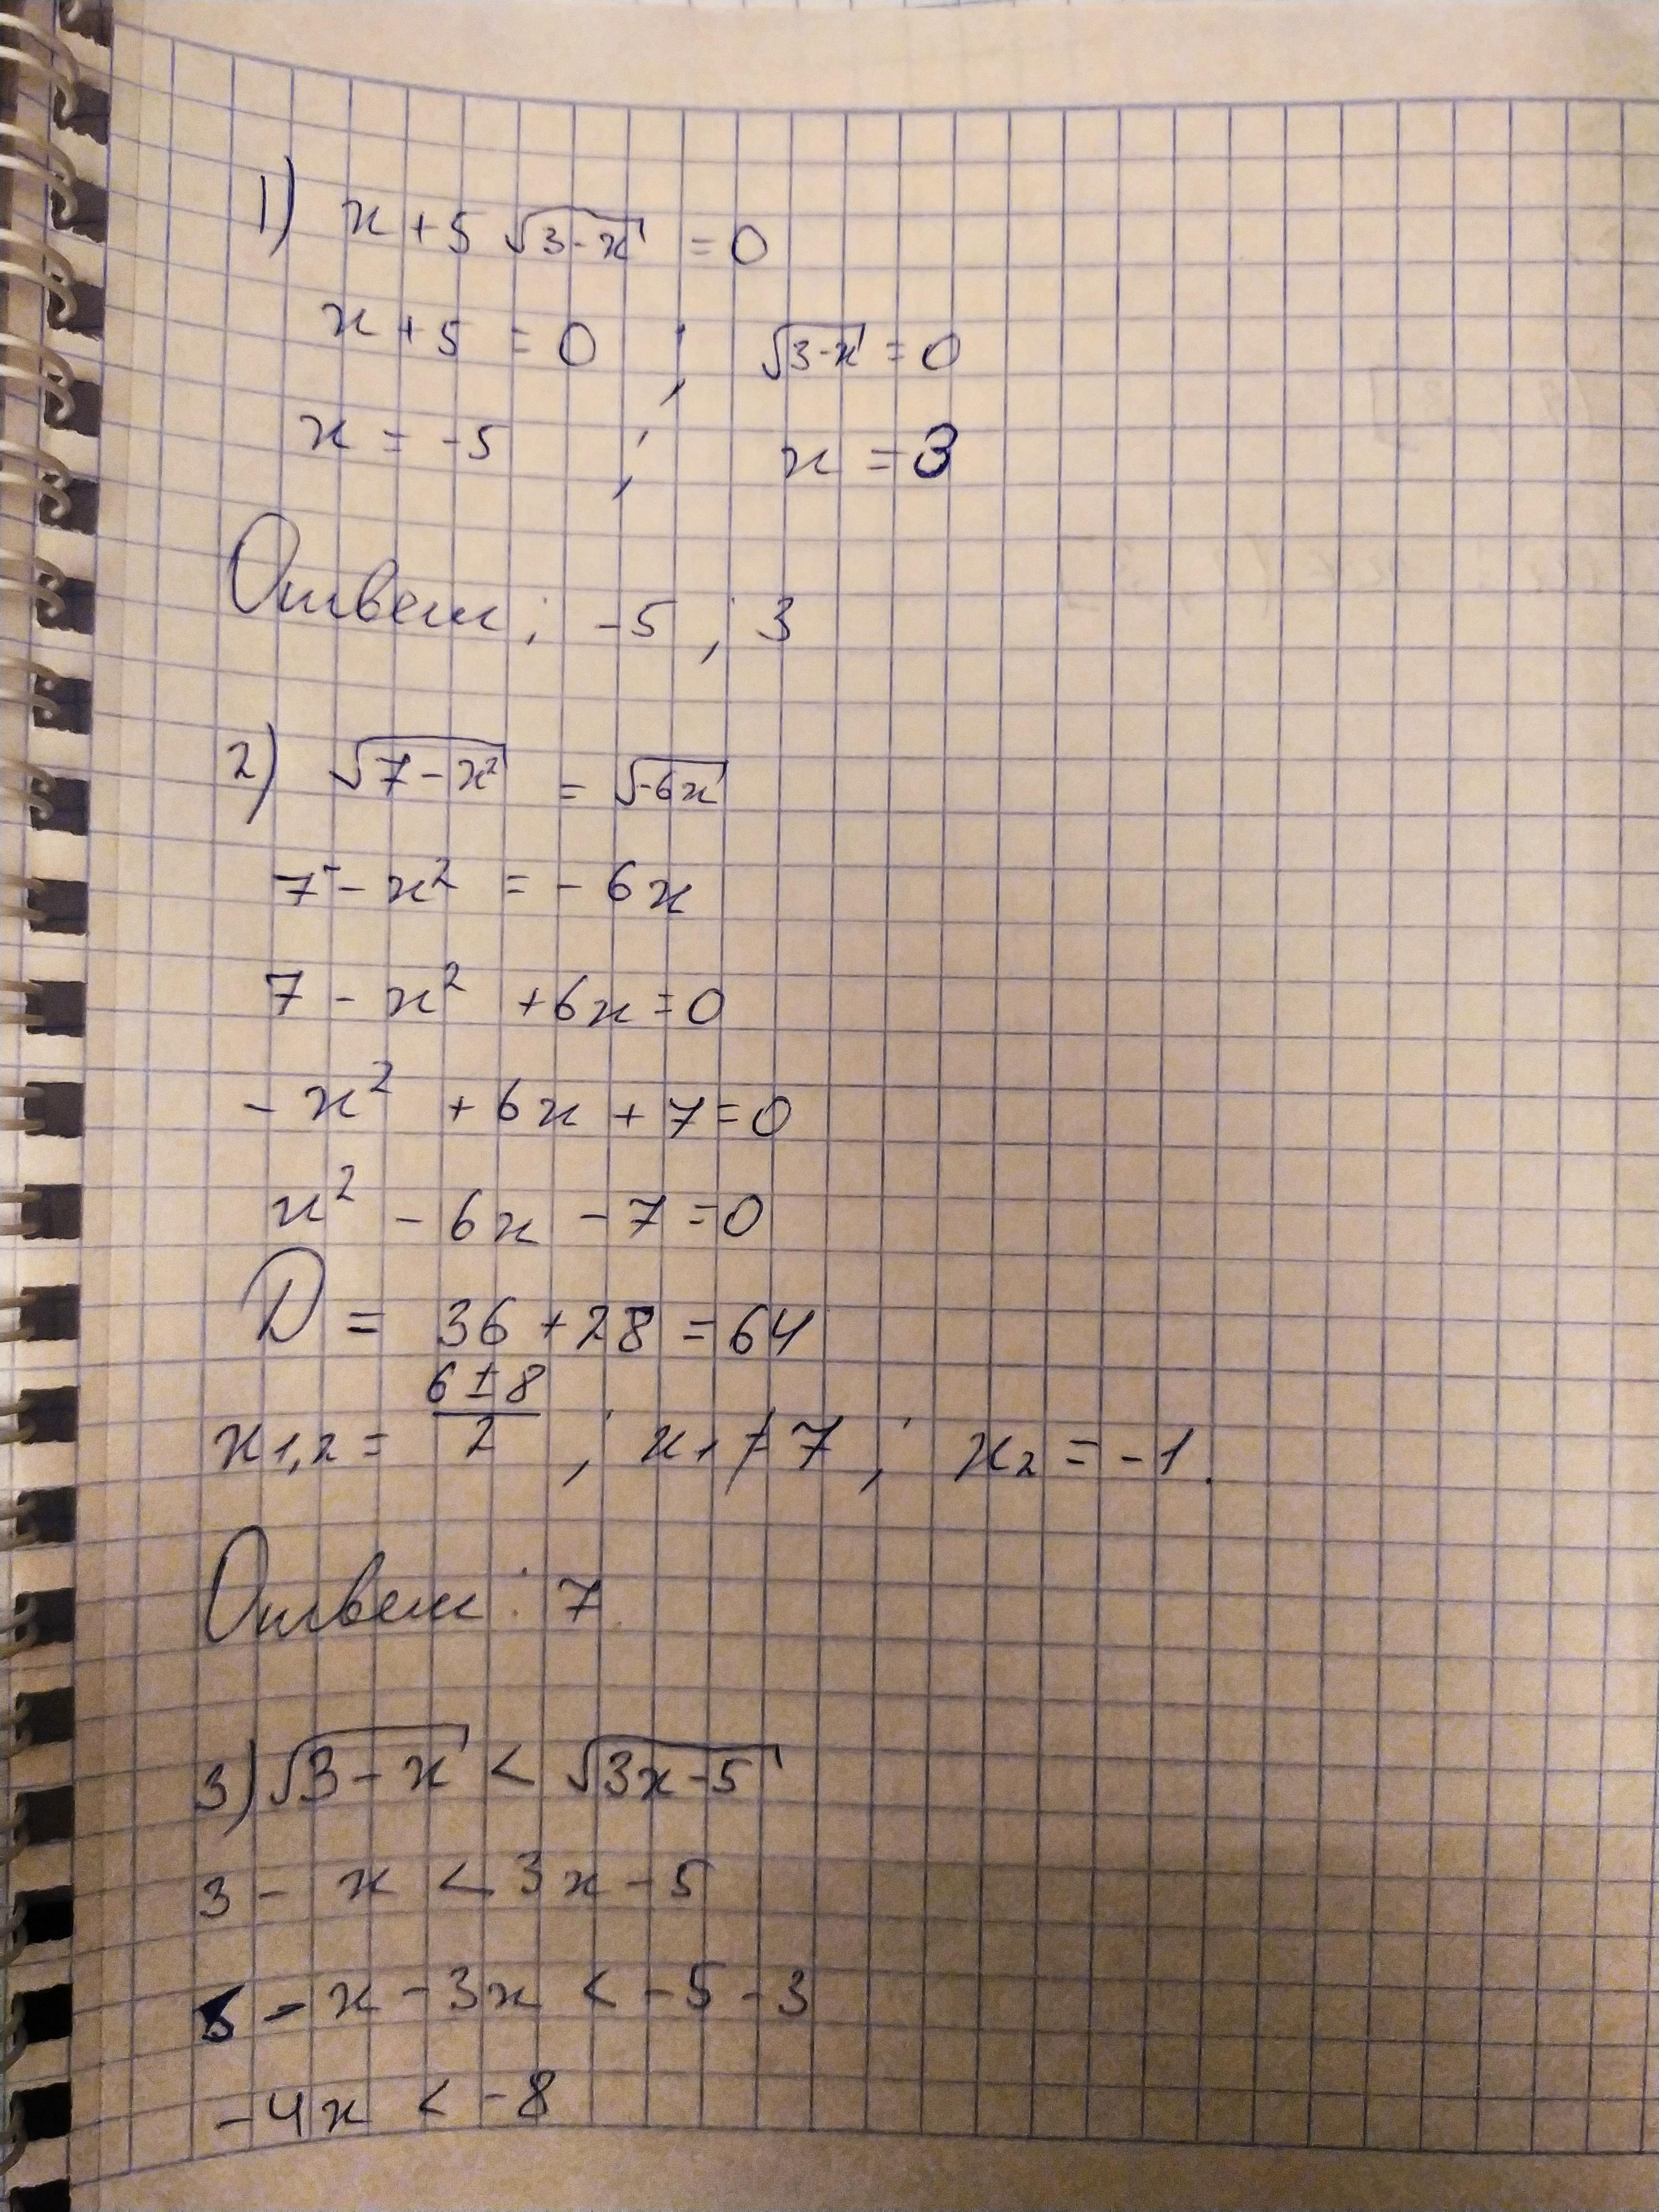 1) x + 5 √3-x = 0
x + 5 = 0 ; √3-x = 0
x = -5 ; x = 3
Ответ: -5 ; 3
2) √7-x² = √-6x
7 - x² = - 6x
7 - x² + 6x = 0
- x² + 6x + 7 = 0
x² - 6x - 7 = 0
D = 36 + 28 = 64
x1,2 = 6±8/2 ; x1 ≠ 7 ; x2 = -1.
Ответ: 7
3) √3-x < √3x-5
3 - x < 3x - 5
- x - 3x < -5 - 3
-4x < -8